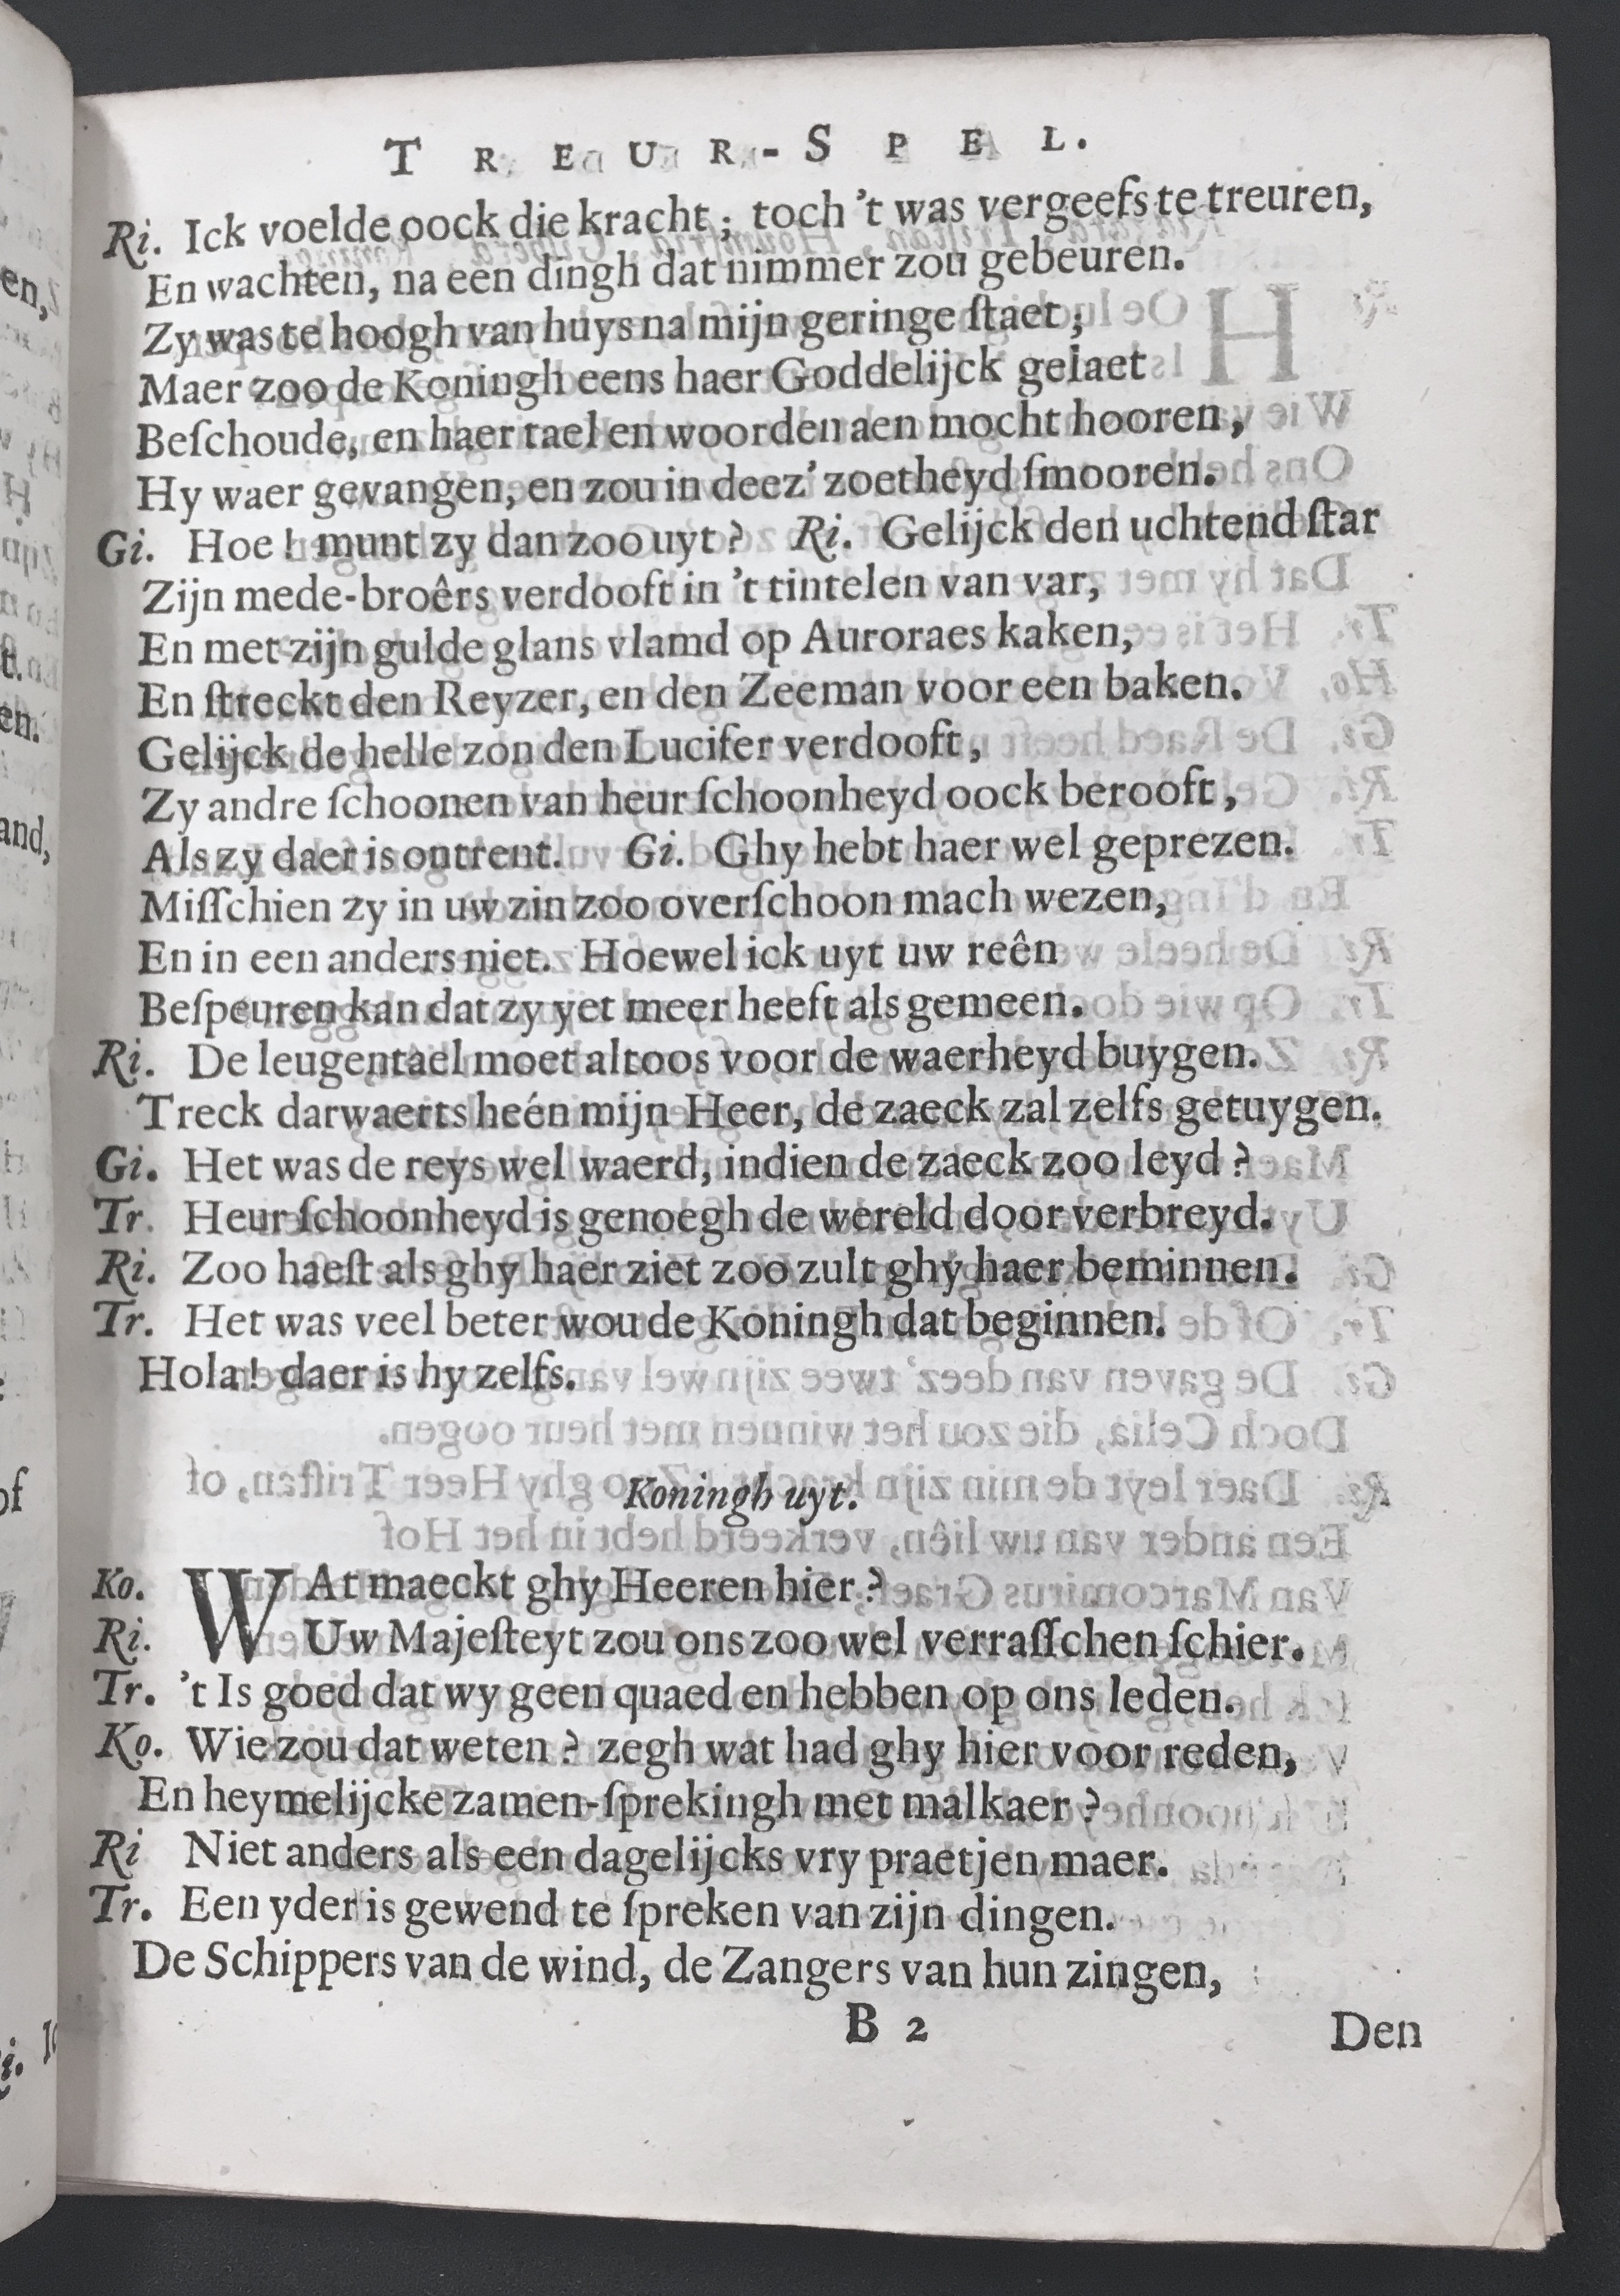 TREUR-SPEL.
Ri. Ick voelde oock die kracht; toch 't was vergeefs te treuren,
En wachten, na een dingh dat nimmer zou gebeuren.
Zy was te hoogh van huys na mijn geringe ſtaet;
Maer zoo de Koningh eens haer Goddelijck gelaet
Beſchoude, en haer tael en woorden aen mocht hooren,
Hy waer gevangen, en zou in deez' zoetheyd ſmooren.
Gi. Hoe! munt zy dan zoo uyt? Ri. Gelijck den uchtend ſtar
Zijn mede-broêrs verdooft in 't tintelen van var,
En met zijn gulde glans vlamd op Auroraes kaken,
En ſtreckt den Reyzer, en den Zeeman voor een baken.
Gelijck de helle zon den Lucifer verdooft,
Zy andre ſchoonen van heur ſchoonheyd oock berooft,
Als zy daer is ontrent. Gi. Ghy hebt haer wel geprezen.
Miſſchien zy in uw zin zoo overſchoon mach wezen,
En in een anders niet. Hoewel ick uyt uw reên
Beſpeuren kan dat zy yet meer heeft als gemeen.
Ri. De leugentael moet altoos voor de waerheyd buygen.
Treck darwaerts heén mijn Heer, de zaeck zal zelfs getuygen.
Gi. Het was de reys wel waerd, indien de zaeck zoo leyd?
Tr. Heur ſchoonheyd is genoegh de wereld door verbreyd.
Ri. Zoo haeſt als ghy haer ziet zoo zult ghy haer beminnen.
Tr. Het was veel beter wou de Koningh dat beginnen.
Hola! daer is hy zelfs.
Koningh uyt.
Ko. WAt maeckt ghy Heeren hier?
Ri. Uw Majeſteyt zou ons zoo wel verraſſchen ſchier.
Tr. 't Is goed dat wy geen quaed en hebben op ons leden.
Ko. Wie zou dat weten? zegh wat had ghy hier voor reden,
En heymelijcke zamen-ſprekingh met malkaer?
Ri Niet anders als een dagelijcks vry praetjen maer.
Tr. Een yder is gewend te ſpreken van zijn dingen.
De Schippers van de wind, de Zangers van hun zingen,
B 2 Den